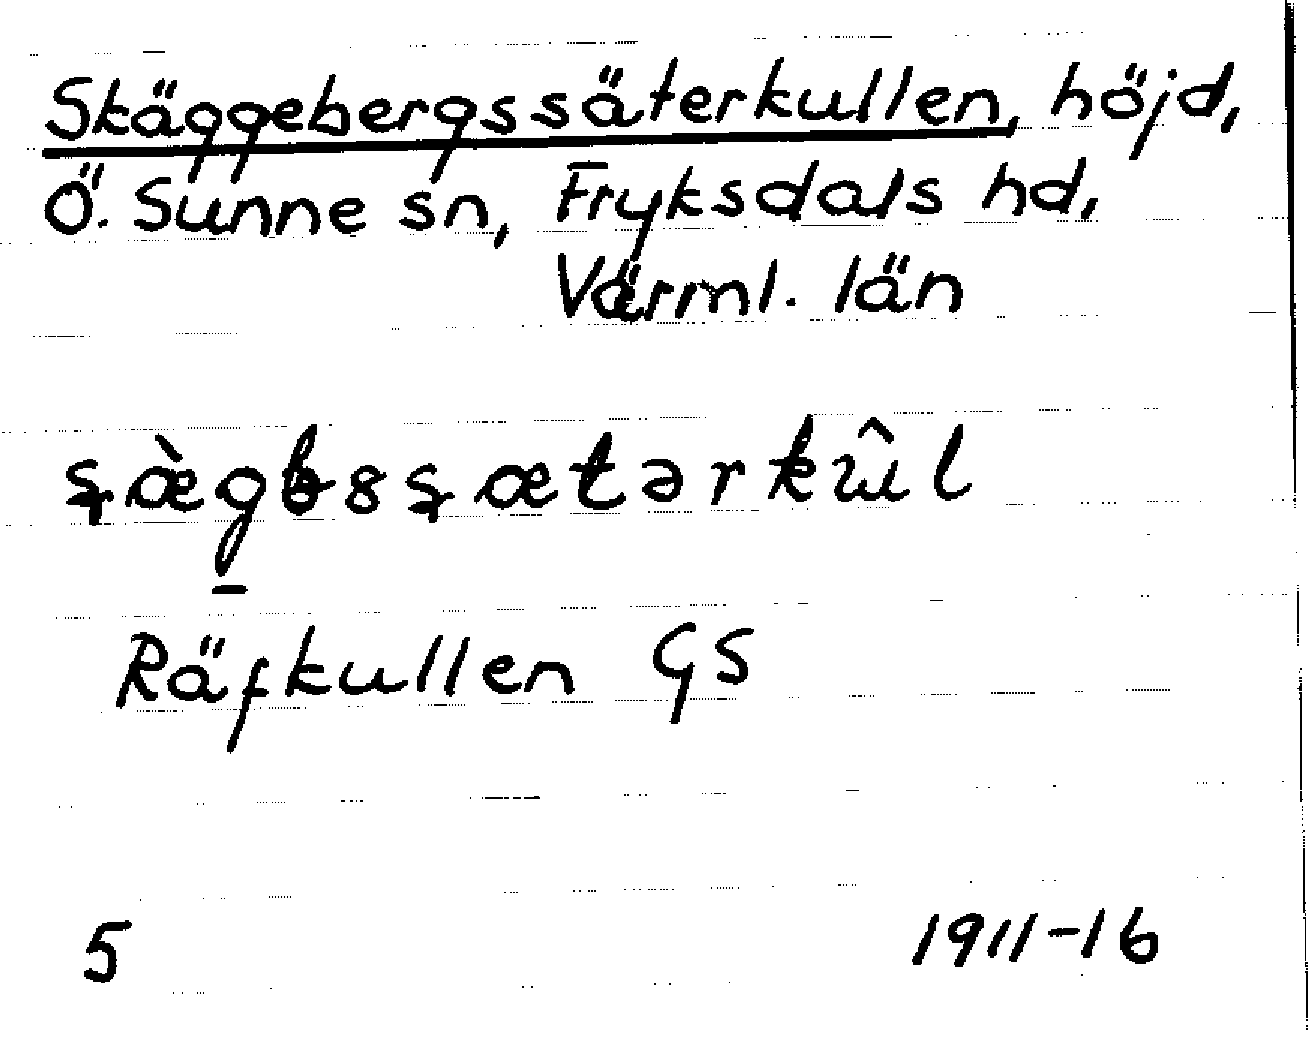 Skäggebergssäterkullen, höjd,
Ö. Sunne sn, Fryksdals hd,
Värml. län
Räfkullen GS
5 1911-16